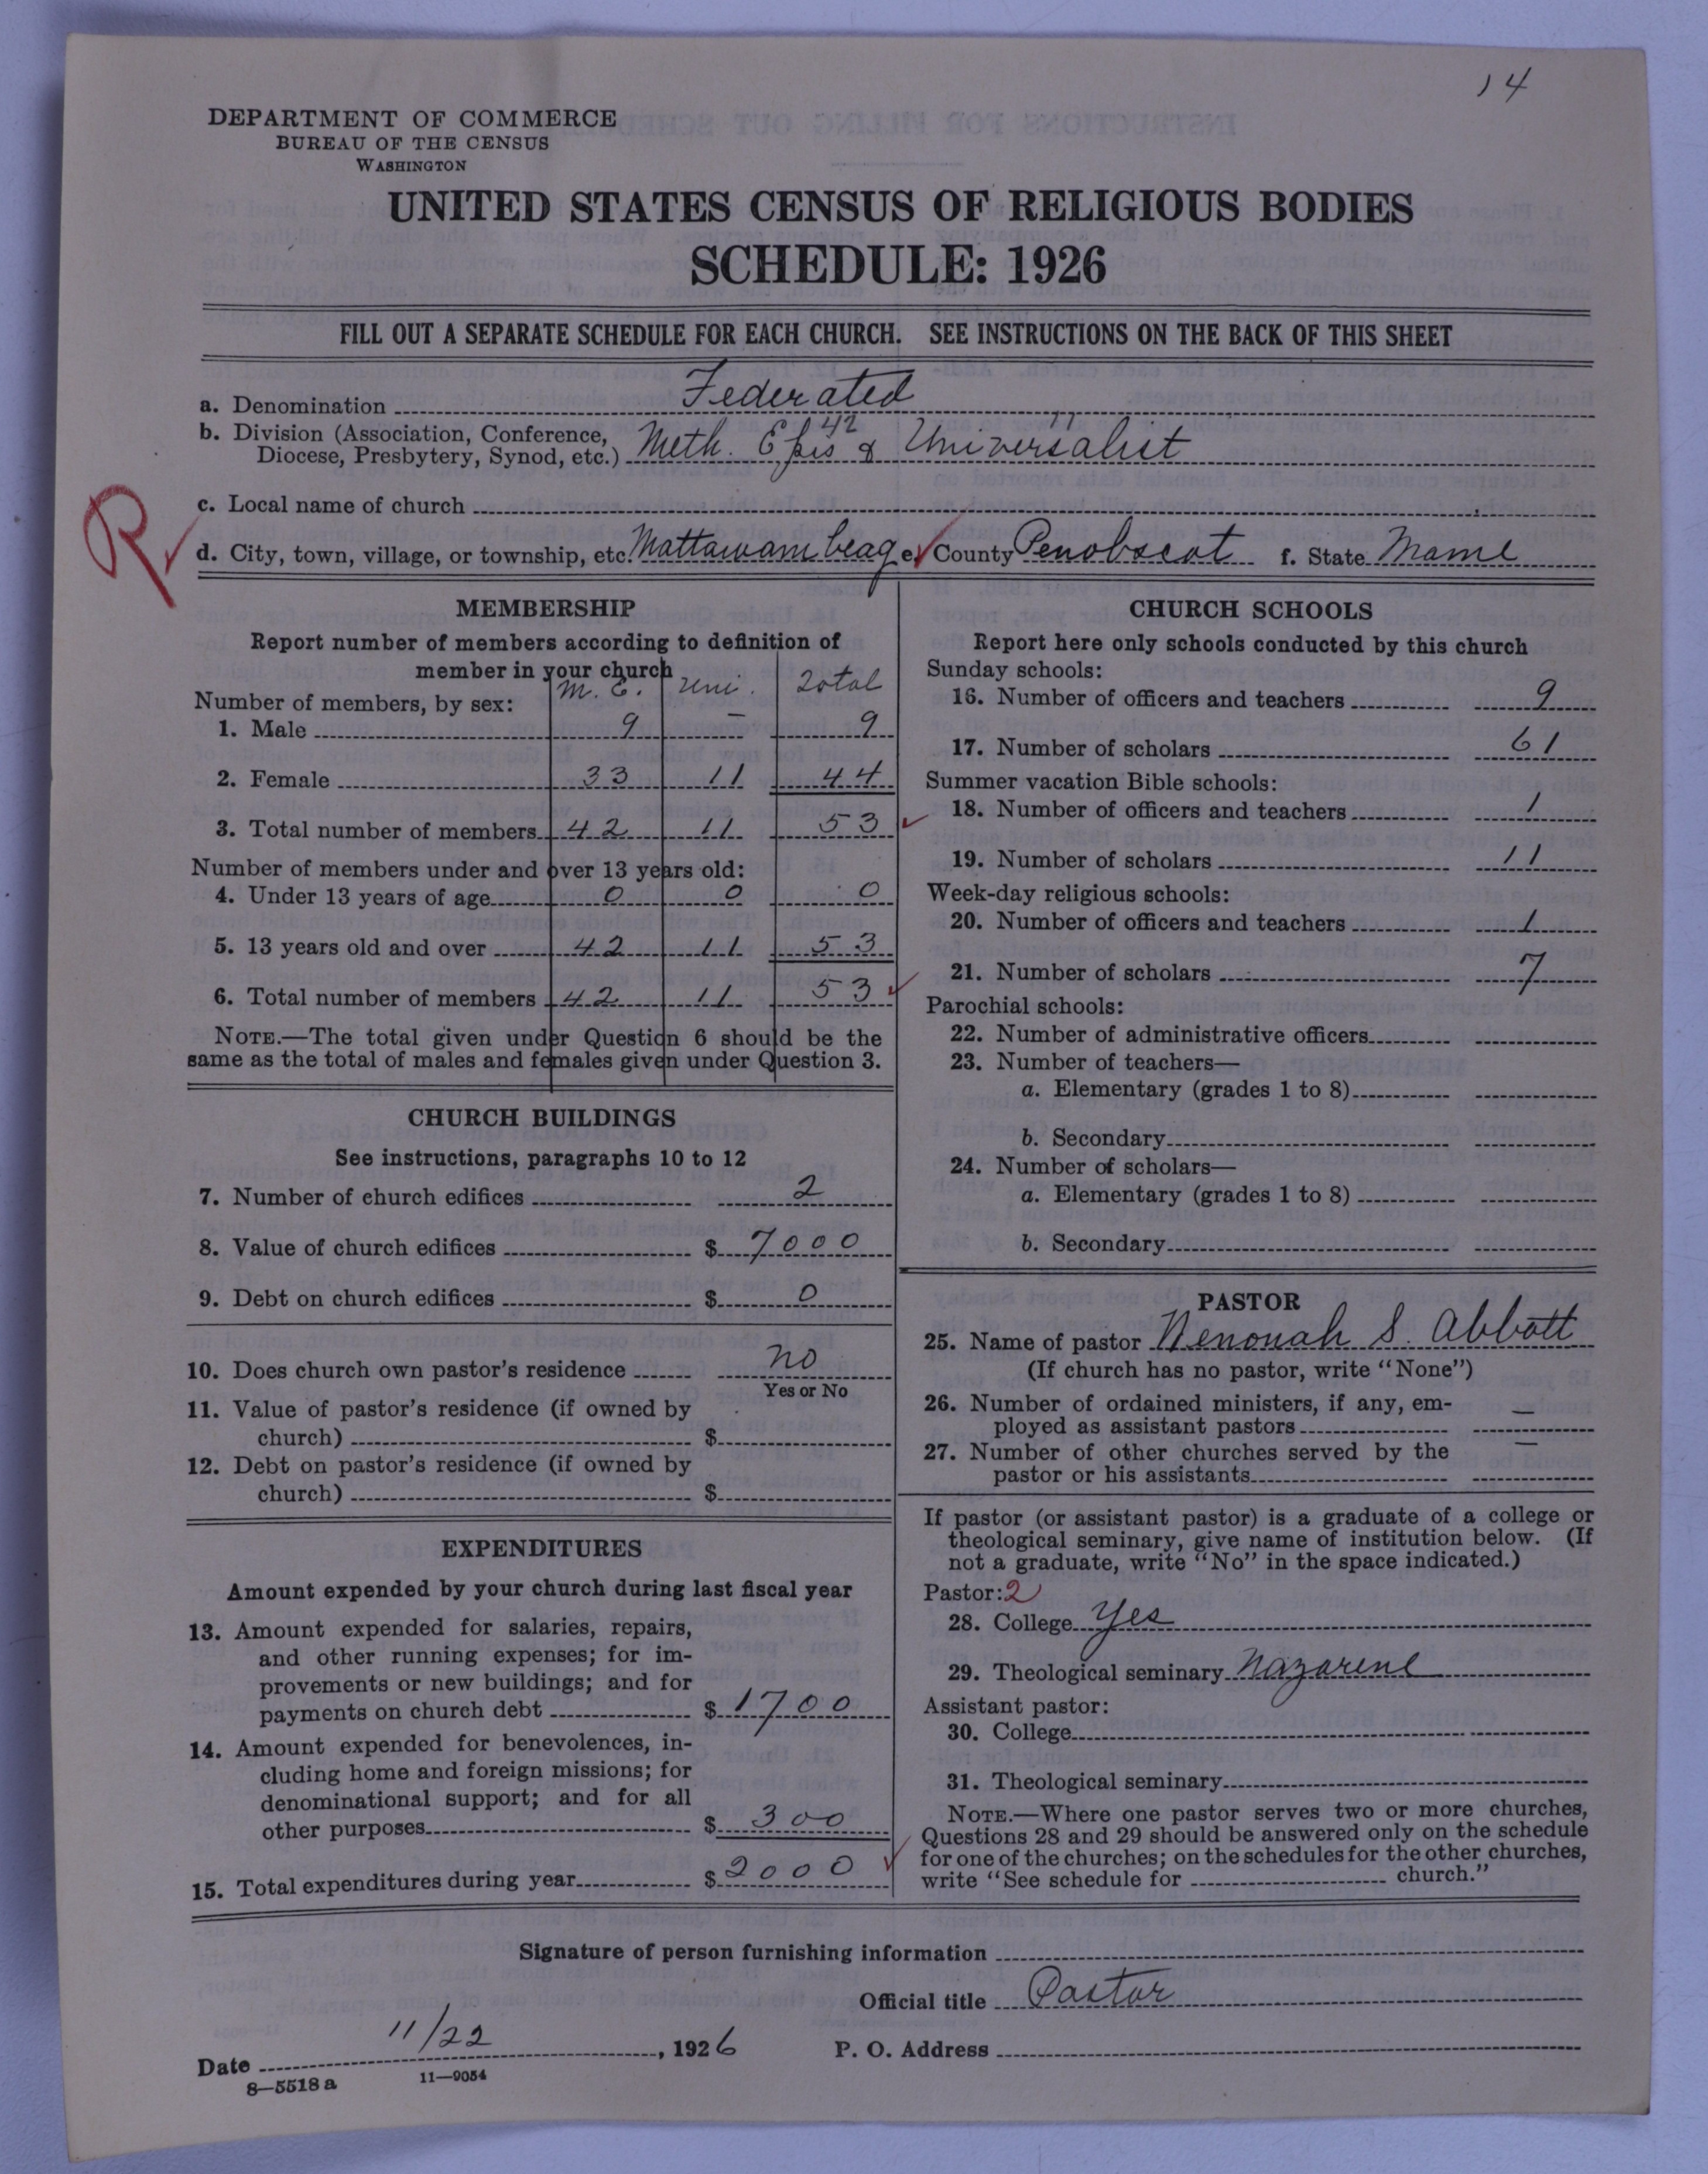 14
DEPARTMENT OF COMMERCE
BUREAU OF THE CENSUS
WASHINGTON
UNITED STATES CENSUS OF RELIGIOUS BODIES
SCHEDULE: 1926
FILL OUT A SEPARATE SCHEDULE FOR EACH CHURCH. SEE INSTRUCTIONS ON THE BACK OF THIS SHEET
a. Denomination Federated
b. Division (Association, Conference, Diocese, Presbytery, Synod, etc.) Meth. Epis 42 & Universalist
c. Local name of church
R
d. City, town, village, or township, etc. Mattawambeag e. County Penobscot f. State Maine
MEMBERSHIP
Report number of members according to definition of
member in your church
M. E. Uni. Total
Number of members, by sex:
1. Male 9 – 9
2. Female 33 11 44
3. Total number of members 42 11 53
Number of members under and over 13 years old:
4. Under 13 years of age 0 0 0
5. 13 years old and over 42 11 53
6. Total number of members 42 11 53
NOTE.—The total given under Question 6 should be the
same as the total of males and females given under Question 3.
CHURCH BUILDINGS
See instructions, paragraphs 10 to 12
7. Number of church edifices 2
8. Value of church edifices $ 7000
9. Debt on church edifices $ 0
10. Does church own pastor's residence no
Yes or No
11. Value of pastor's residence (if owned by
church) $
12. Debt on pastor's residence (if owned by
church) $
EXPENDITURES
Amount expended by your church during last fiscal year
13. Amount expended for salaries, repairs,
and other running expenses; for im-
provements or new buildings; and for
payments on church debt $ 1700
14. Amount expended for benevolences, in-
cluding home and foreign missions; for
denominational support; and for all
other purposes $ 300
15. Total expenditures during year $ 2000
CHURCH SCHOOLS
Report here only schools conducted by this church
Sunday schools:
16. Number of officers and teachers 9
17. Number of scholars 61
Summer vacation Bible schools:
18. Number of officers and teachers 1
19. Number of scholars 11
Week-day religious schools:
20. Number of officers and teachers 1
21. Number of scholars 7
Parochial schools:
22. Number of administrative officers
23. Number of teachers—
a. Elementary (grades 1 to 8)
b. Secondary
24. Number of scholars—
a. Elementary (grades 1 to 8)
b. Secondary
PASTOR
25. Name of pastor Nenonah S. Abbott
(If church has no pastor, write "None")
26. Number of ordained ministers, if any, em-
ployed as assistant pastors –
27. Number of other churches served by the
pastor or his assistants –
If pastor (or assistant pastor) is a graduate of a college or
theological seminary, give name of institution below. (If
not a graduate, write "No" in the space indicated.)
Pastor: 2
28. College Yes
29. Theological seminary Nazarene
Assistant pastor:
30. College
31. Theological seminary
NOTE.—Where one pastor serves two or more churches,
Questions 28 and 29 should be answered only on the schedule
for one of the churches; on the schedules for the other churches,
write "See schedule for church."
Signature of person furnishing information
Official title Pastor
Date 11/22, 1926 P. O. Address
8—5518 a 11—9054